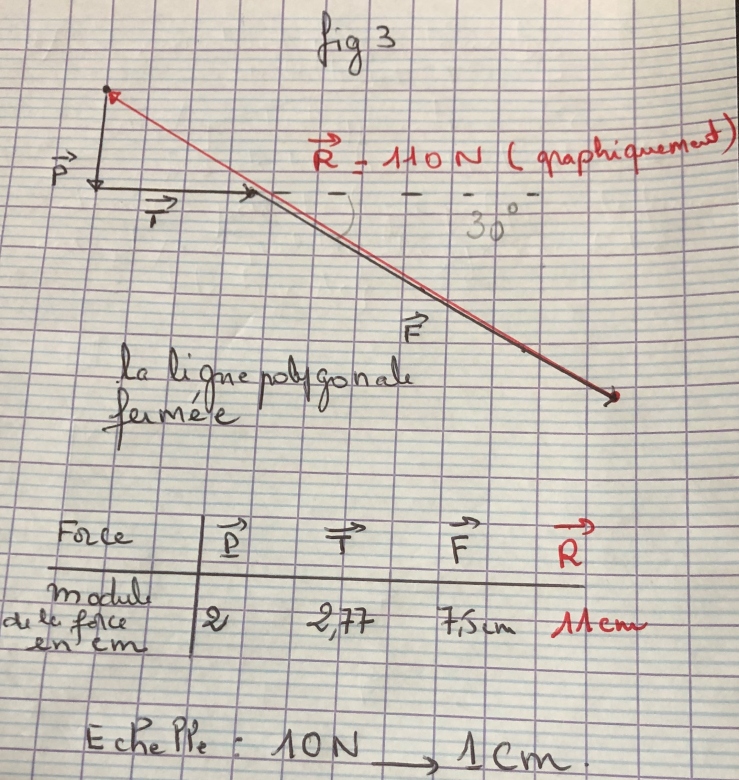 fig 3
R = 110 N ( graphiquement)
P
T
30°
F
la ligne polygonale
fermée
Force P T F R
module
de la force 2 2,77 7,5cm 11cm
en cm
Echelle : 10N → 1cm.